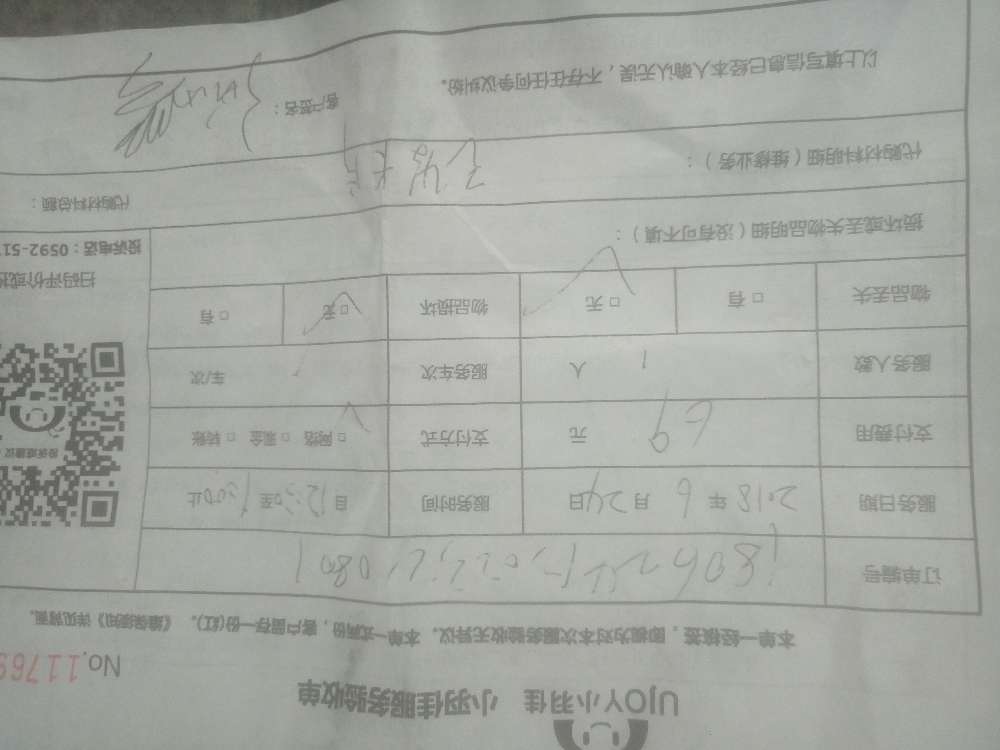 UJOY小羽佳 小羽佳服务验收单
No.11769
本单一经核签,即视为对本次服务验收无异议。本单一式两份,客户留存一份(红)。
订单编号
服务日期 2018 年 6 月 24 日 服务时间 自 12:30 至 1:00 止
支付费用 69 元 支付方式 □ 网络 □ 现金 □ 转账
服务人数 1 人 服务车次 1 车/次
物品丢失 □ 有 □ 无 物品损坏 □ 无 □ 有
扫码评价或投
投诉电话:0592-51
损坏或丢失物品明细(没有可不填):
代购材料明细(维修业务):
代购材料总额:
以上填写信息已经本人确认无误,不存在任何争议纠纷。
客户签名: